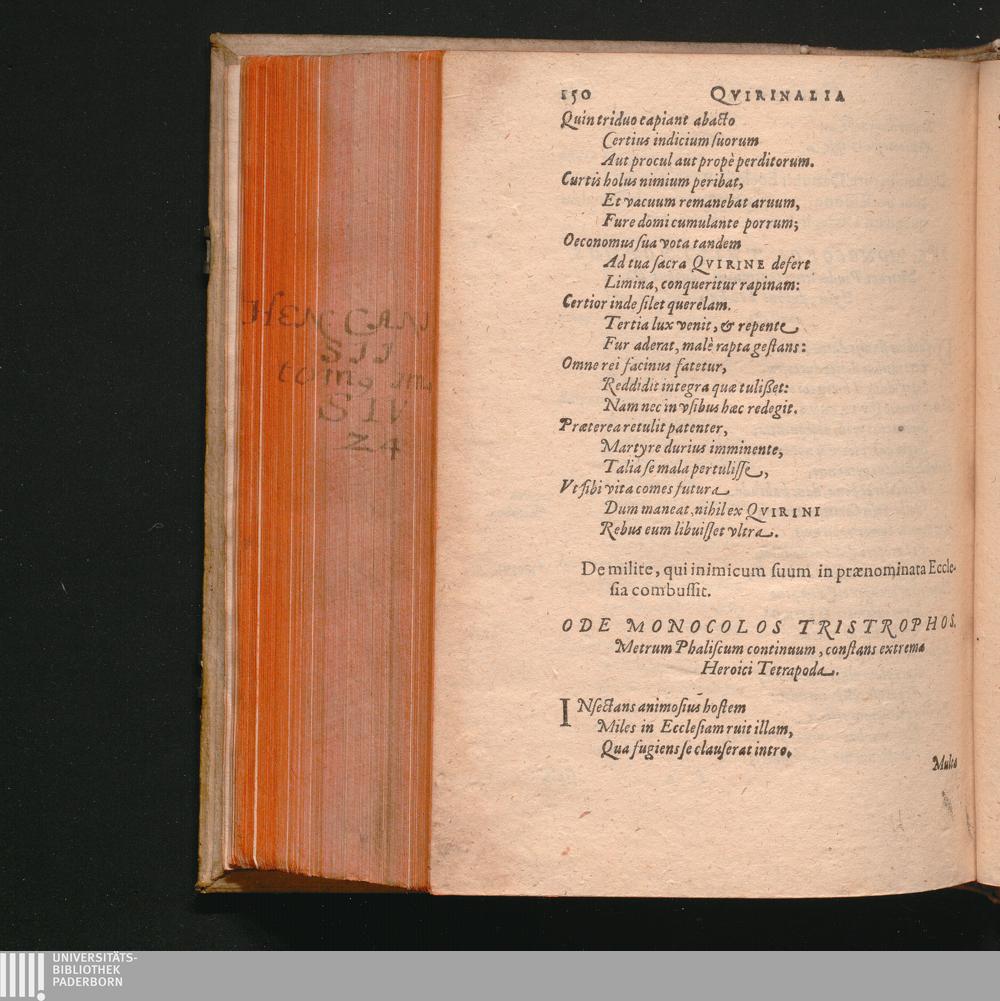 HEN CANI
SII
tomq
S IV
24
150 QVIRINALIA
Quin triduo capiant abacto
Certius indicium suorum
Aut procul aut propè perditorum.
Curtis holus nimium peribat,
Et vacuum remanebat aruum,
Fure domi cumulante porrum;
Oeconomus sua vota tandem
Ad tua sacra QVIRINE defert
Limina, conqueritur rapinam:
Certior inde silet querelam.
Tertia lux venit, & repente
Fur aderat, malè rapta gestans:
Omne rei facinus fatetur,
Reddidit integra quæ tulißet:
Nam nec in vsibus hæc redegit.
Præterea retulit patenter,
Martyre durius imminente,
Talia se mala pertulisse,
Vt sibi vita comes futura
Dum maneat, nihil ex QVIRINI
Rebus eum libuisset vltra.
De milite, qui inimicum suum in prænominata Eccle-
sia combussit.
ODE MONOCOLOS TRISTROPHOS.
Metrum Phaliscum continuum, constans extrema
Heroici Tetrapoda.
INsectans animosius hostem
Miles in Ecclesiam ruit illam,
Qua fugiens se clauserat intro.
Multa
UNIVERSITÄTS-
BIBLIOTHEK
PADERBORN